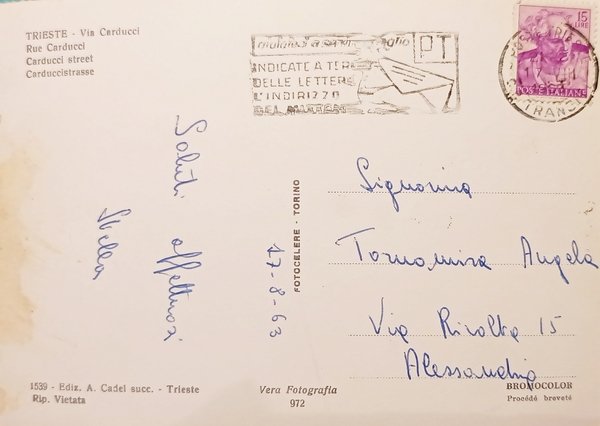 TRIESTE - Via Carducci
Rue Carducci
Carducci street
Carduccistrasse
PT
INDICATE A TERGO
DELLE LETTERE
L'INDIRIZZO
DEL MITTENTE
15
LIRE
POSTE ITALIANE
Saluti affettuosi
Stella
17-8-63
FOTOCELERE - TORINO
Signorina
Tornomira Angela
Via Rivolta 15
Alessandria
1539 - Ediz. A. Cadel succ. - Trieste
Rip. Vietata
Vera Fotografia
972
BROMOCOLOR
Procédé breveté